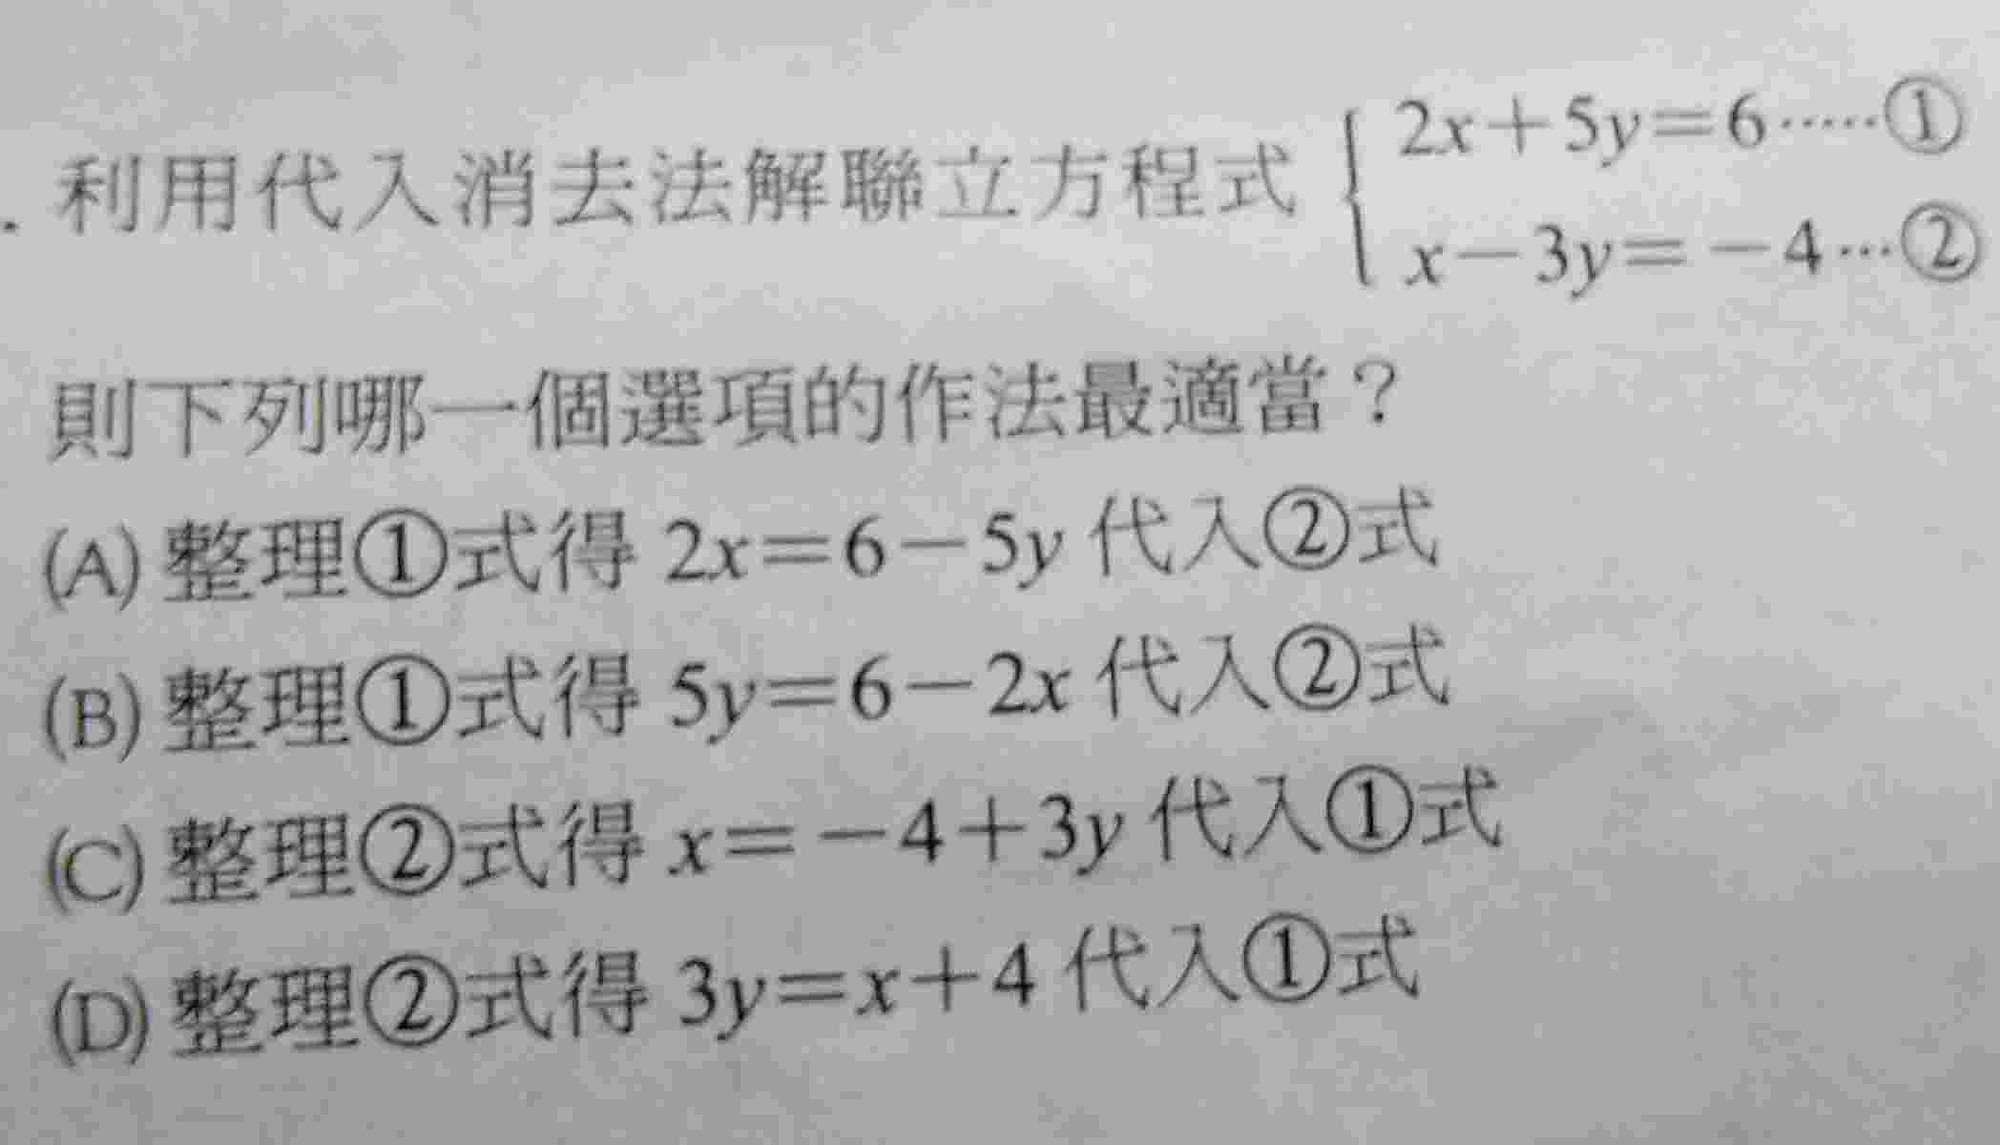 . 利用代入消去法解聯立方程式 { 2x＋5y＝6‧‧‧‧‧①
x－3y＝－4‧‧‧②
則下列哪一個選項的作法最適當？
(A) 整理①式得 2x＝6－5y 代入②式
(B) 整理①式得 5y＝6－2x 代入②式
(C) 整理②式得 x＝－4＋3y 代入①式
(D) 整理②式得 3y＝x＋4 代入①式